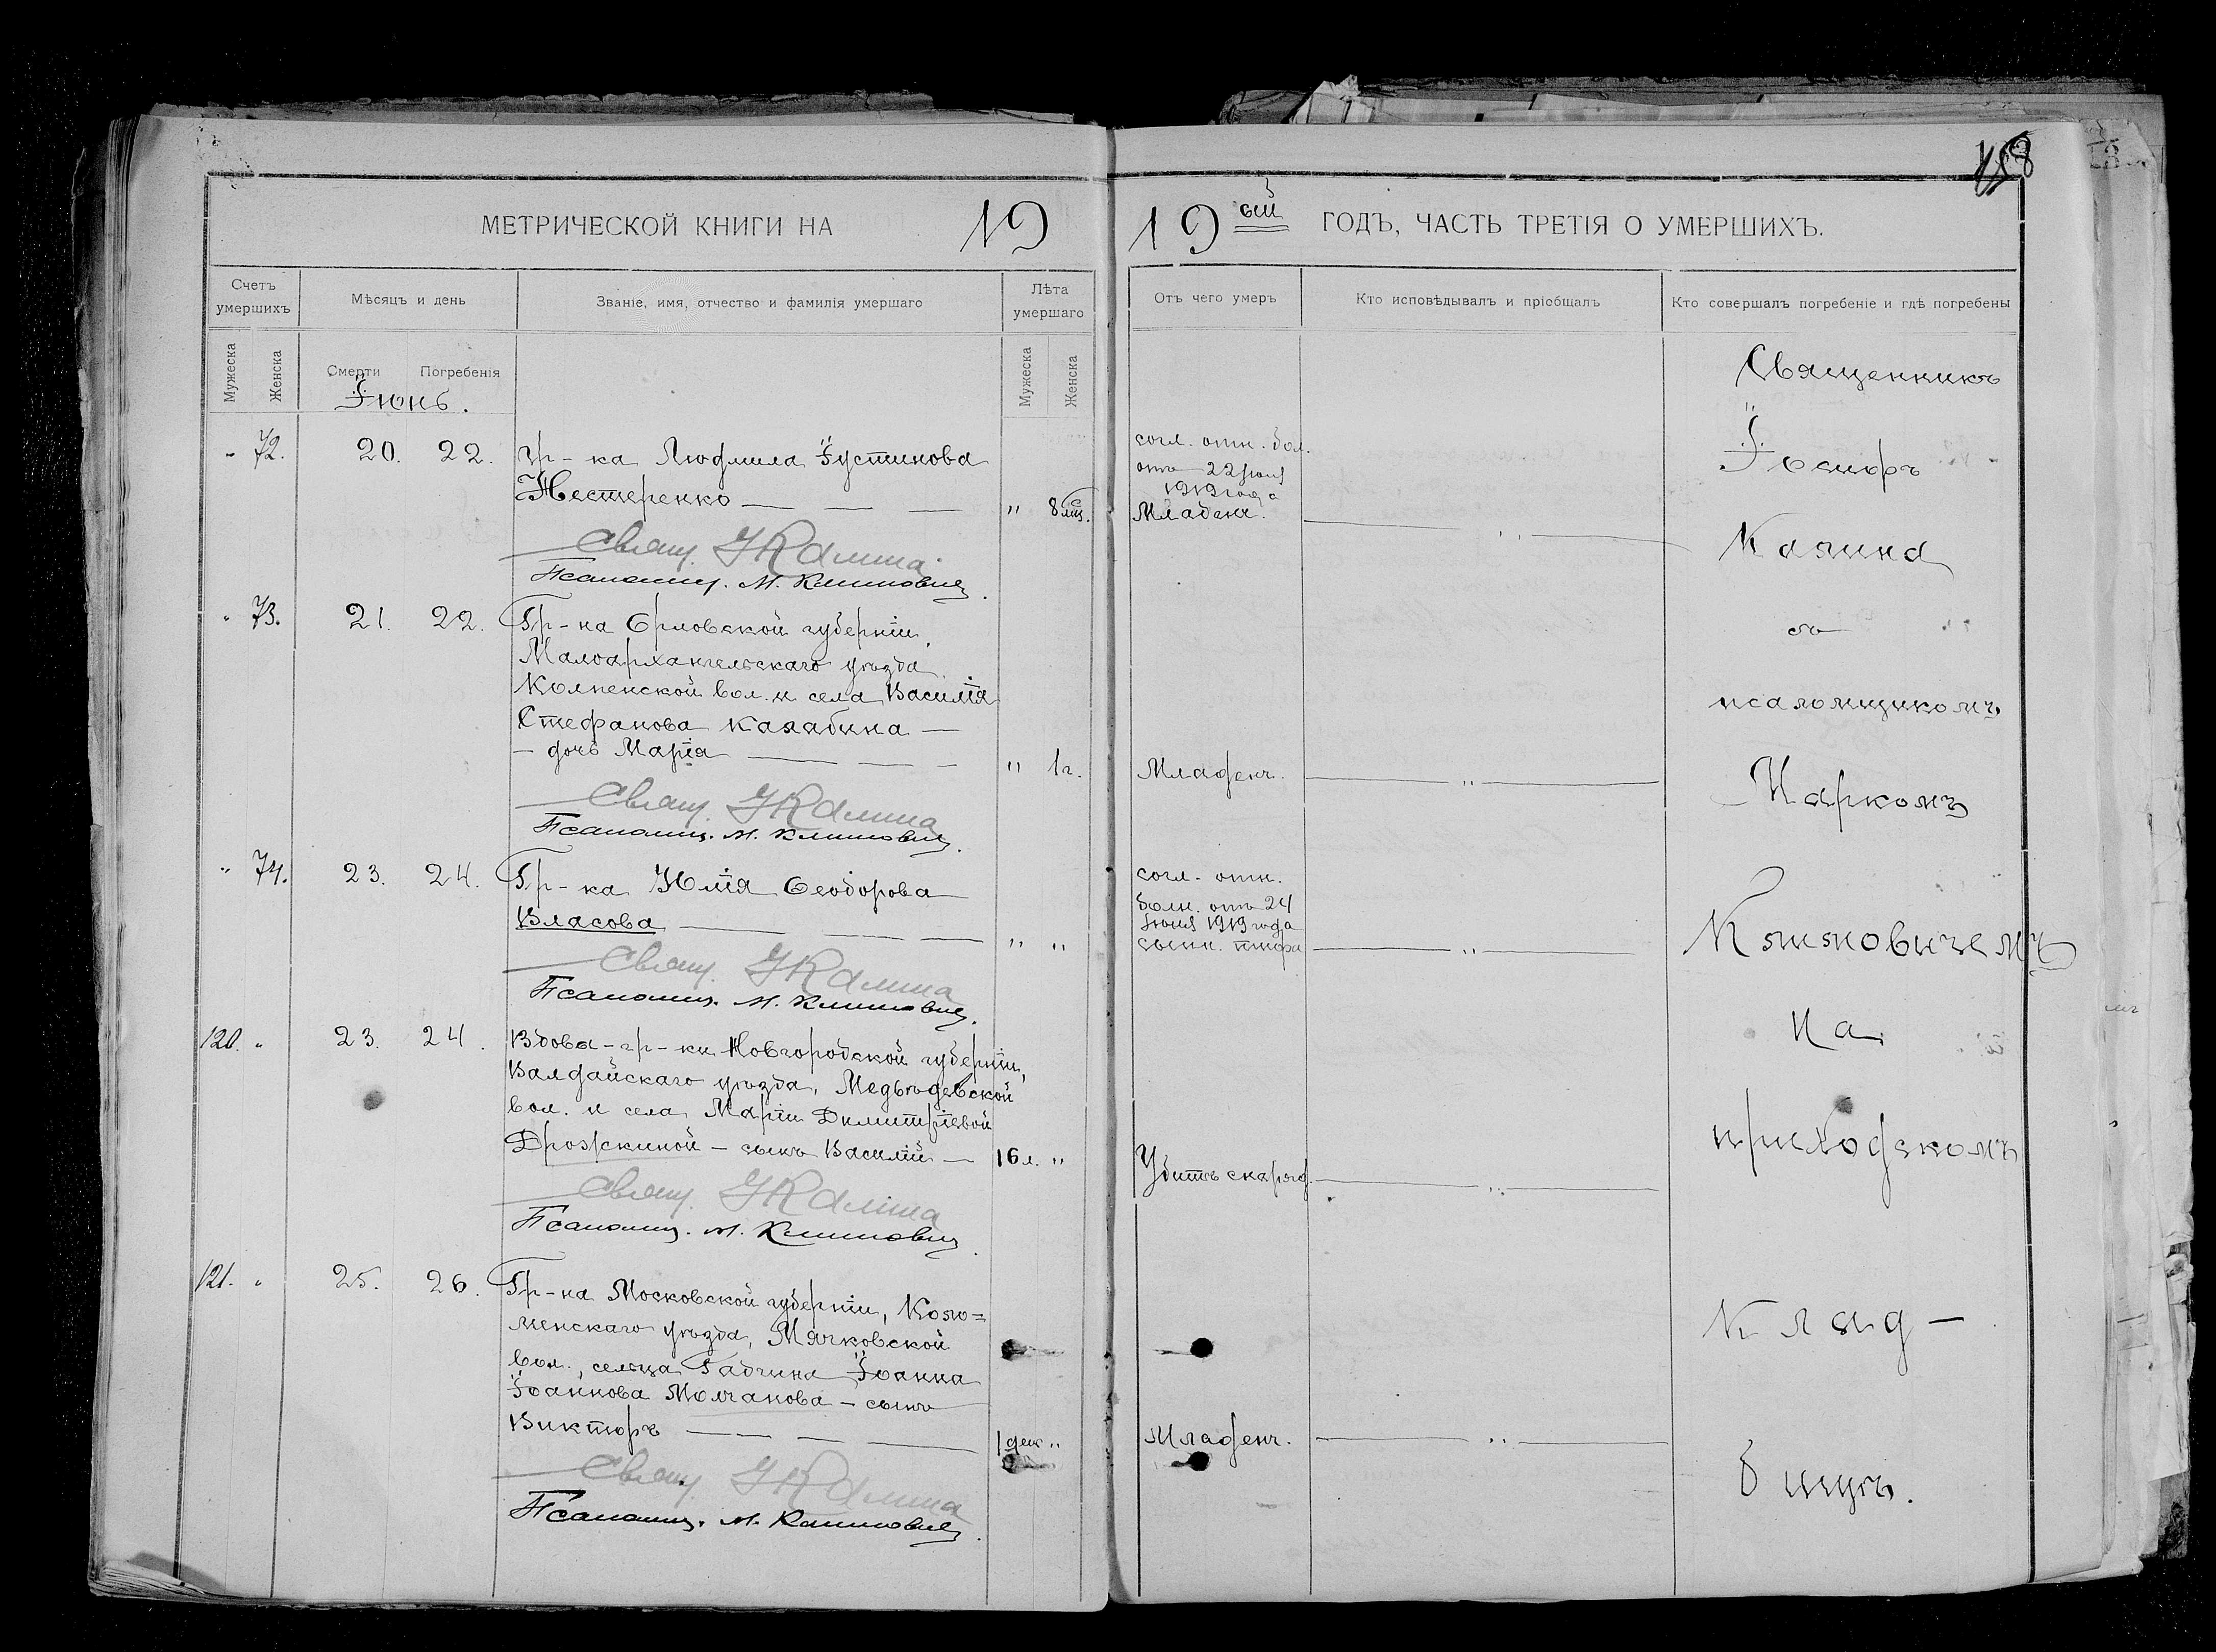 158
МЕТРИЧЕСКОЙ КНИГИ НА 19
19 ый ГОДЪ, ЧАСТЬ ТРЕТІЯ О УМЕРШИХЪ.
Счетъ умершихъ
Мѣсяцъ и день
Званіе, имя, отчество и фамилія умершаго
Лѣта умершаго
Отъ чего умеръ
Кто исповѣдывалъ и пріобщалъ
Кто совершалъ погребеніе и гдѣ погребены
Мужеска
Женска
Смерти
Погребенія
Мужеска
Женска
Іюнь.
" 72. 20. 22. Гр-ка Людмила Іустинова
Нестеренко — — — " 8 мс.
согл. отн. бол.
отъ 22 Іюня
1919 года
Младенч. — " —
Свящ. І Калина
Псаломщ. М. Климовичъ.
" 73. 21. 22. Гр-на Орловской губерніи,
Малоархангельскаго уѣзда,
Колпенской вол. и села Василія
Стефанова Калабина —
— дочь Марія — — — " 1 г. Младенч. — " —
Свящ. І Калина
Псаломщ. М. Климовичъ.
" 74. 23. 24. Гр-ка Юлія Ѳеодорова
Власова — — — " "
согл. отн.
болн. отъ 24
Іюня 1919 года
сыпн. тифа — " —
Свящ. І Калина
Псаломщ. М. Климовичъ.
120. " 23. 24. Вдова-гр-ки Новгородской губерніи,
Валдайскаго уѣзда,
вол. и села Маріи Димитріевой
Дрожжиной — сынъ Василій — 16 л. " Убитъ снаряд. — " —
Свящ. І Калина
Псаломщ. М. Климовичъ.
121. " 25. 26. Гр-на Московской губерніи, Коло=
менскаго уѣзда, Мячковской
вол., сельца Іоанна
Іоаннова Молчанова — сынъ
Викторъ — — — 1 ден. " Младенч. — " —
Свящ. І Калина
Псаломщ. М. Климовичъ.
Священникъ
Іосифъ
Калина
съ
псаломщикомъ
Маркомъ
Климовичемъ
на
приходскомъ
клад-
бищѣ.